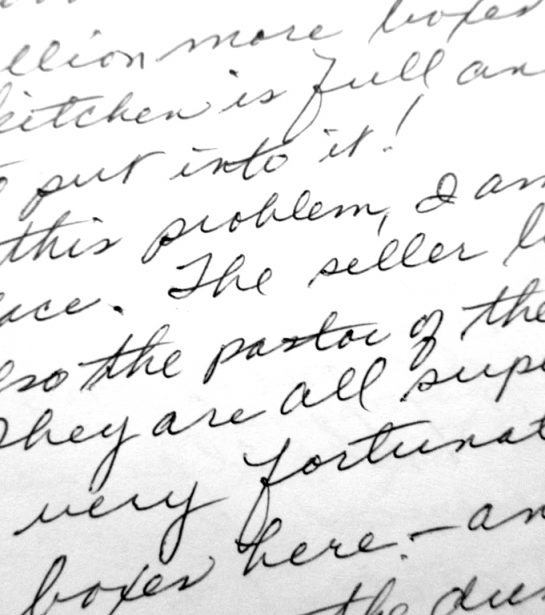 llion more boxes
kitchen is full an
put into it!
this problem, I am
ace. The seller l
lso the pastor of the
They are all supe
very fortunat
boxes here. — an
the dus